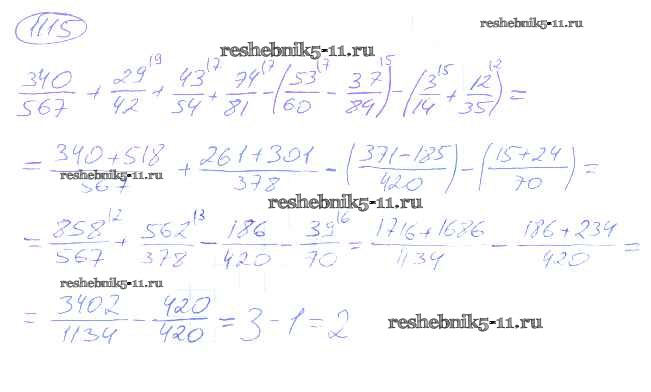 1115
reshebnik5-11.ru
reshebnik5-11.ru
340/567 + 29^(9/42 + 43^(7/54 + 74^(7/81 - (53^(7/60 - 37^(5/84) - (3^(5/14 + 12^(2/35) =
= 340+518/567 + 261+301/378 - (371-185/420) - (15+24/70) =
reshebnik5-11.ru
reshebnik5-11.ru
= 858^(2/567 + 562^(3/378 - 186/420 - 39^(6/70 = 1716+1686/1134 - 186+234/420 =
reshebnik5-11.ru
= 3402/1134 - 420/420 = 3 - 1 = 2
reshebnik5-11.ru